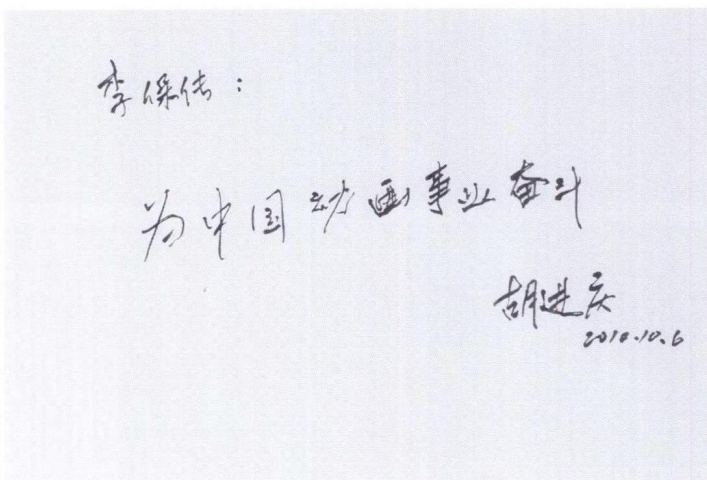 李保传：
为中国动画事业奋斗
胡进庆
2010.10.6